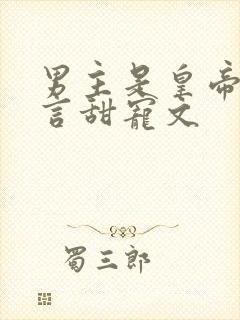 男主是皇帝
言甜宠文
蜀三郎